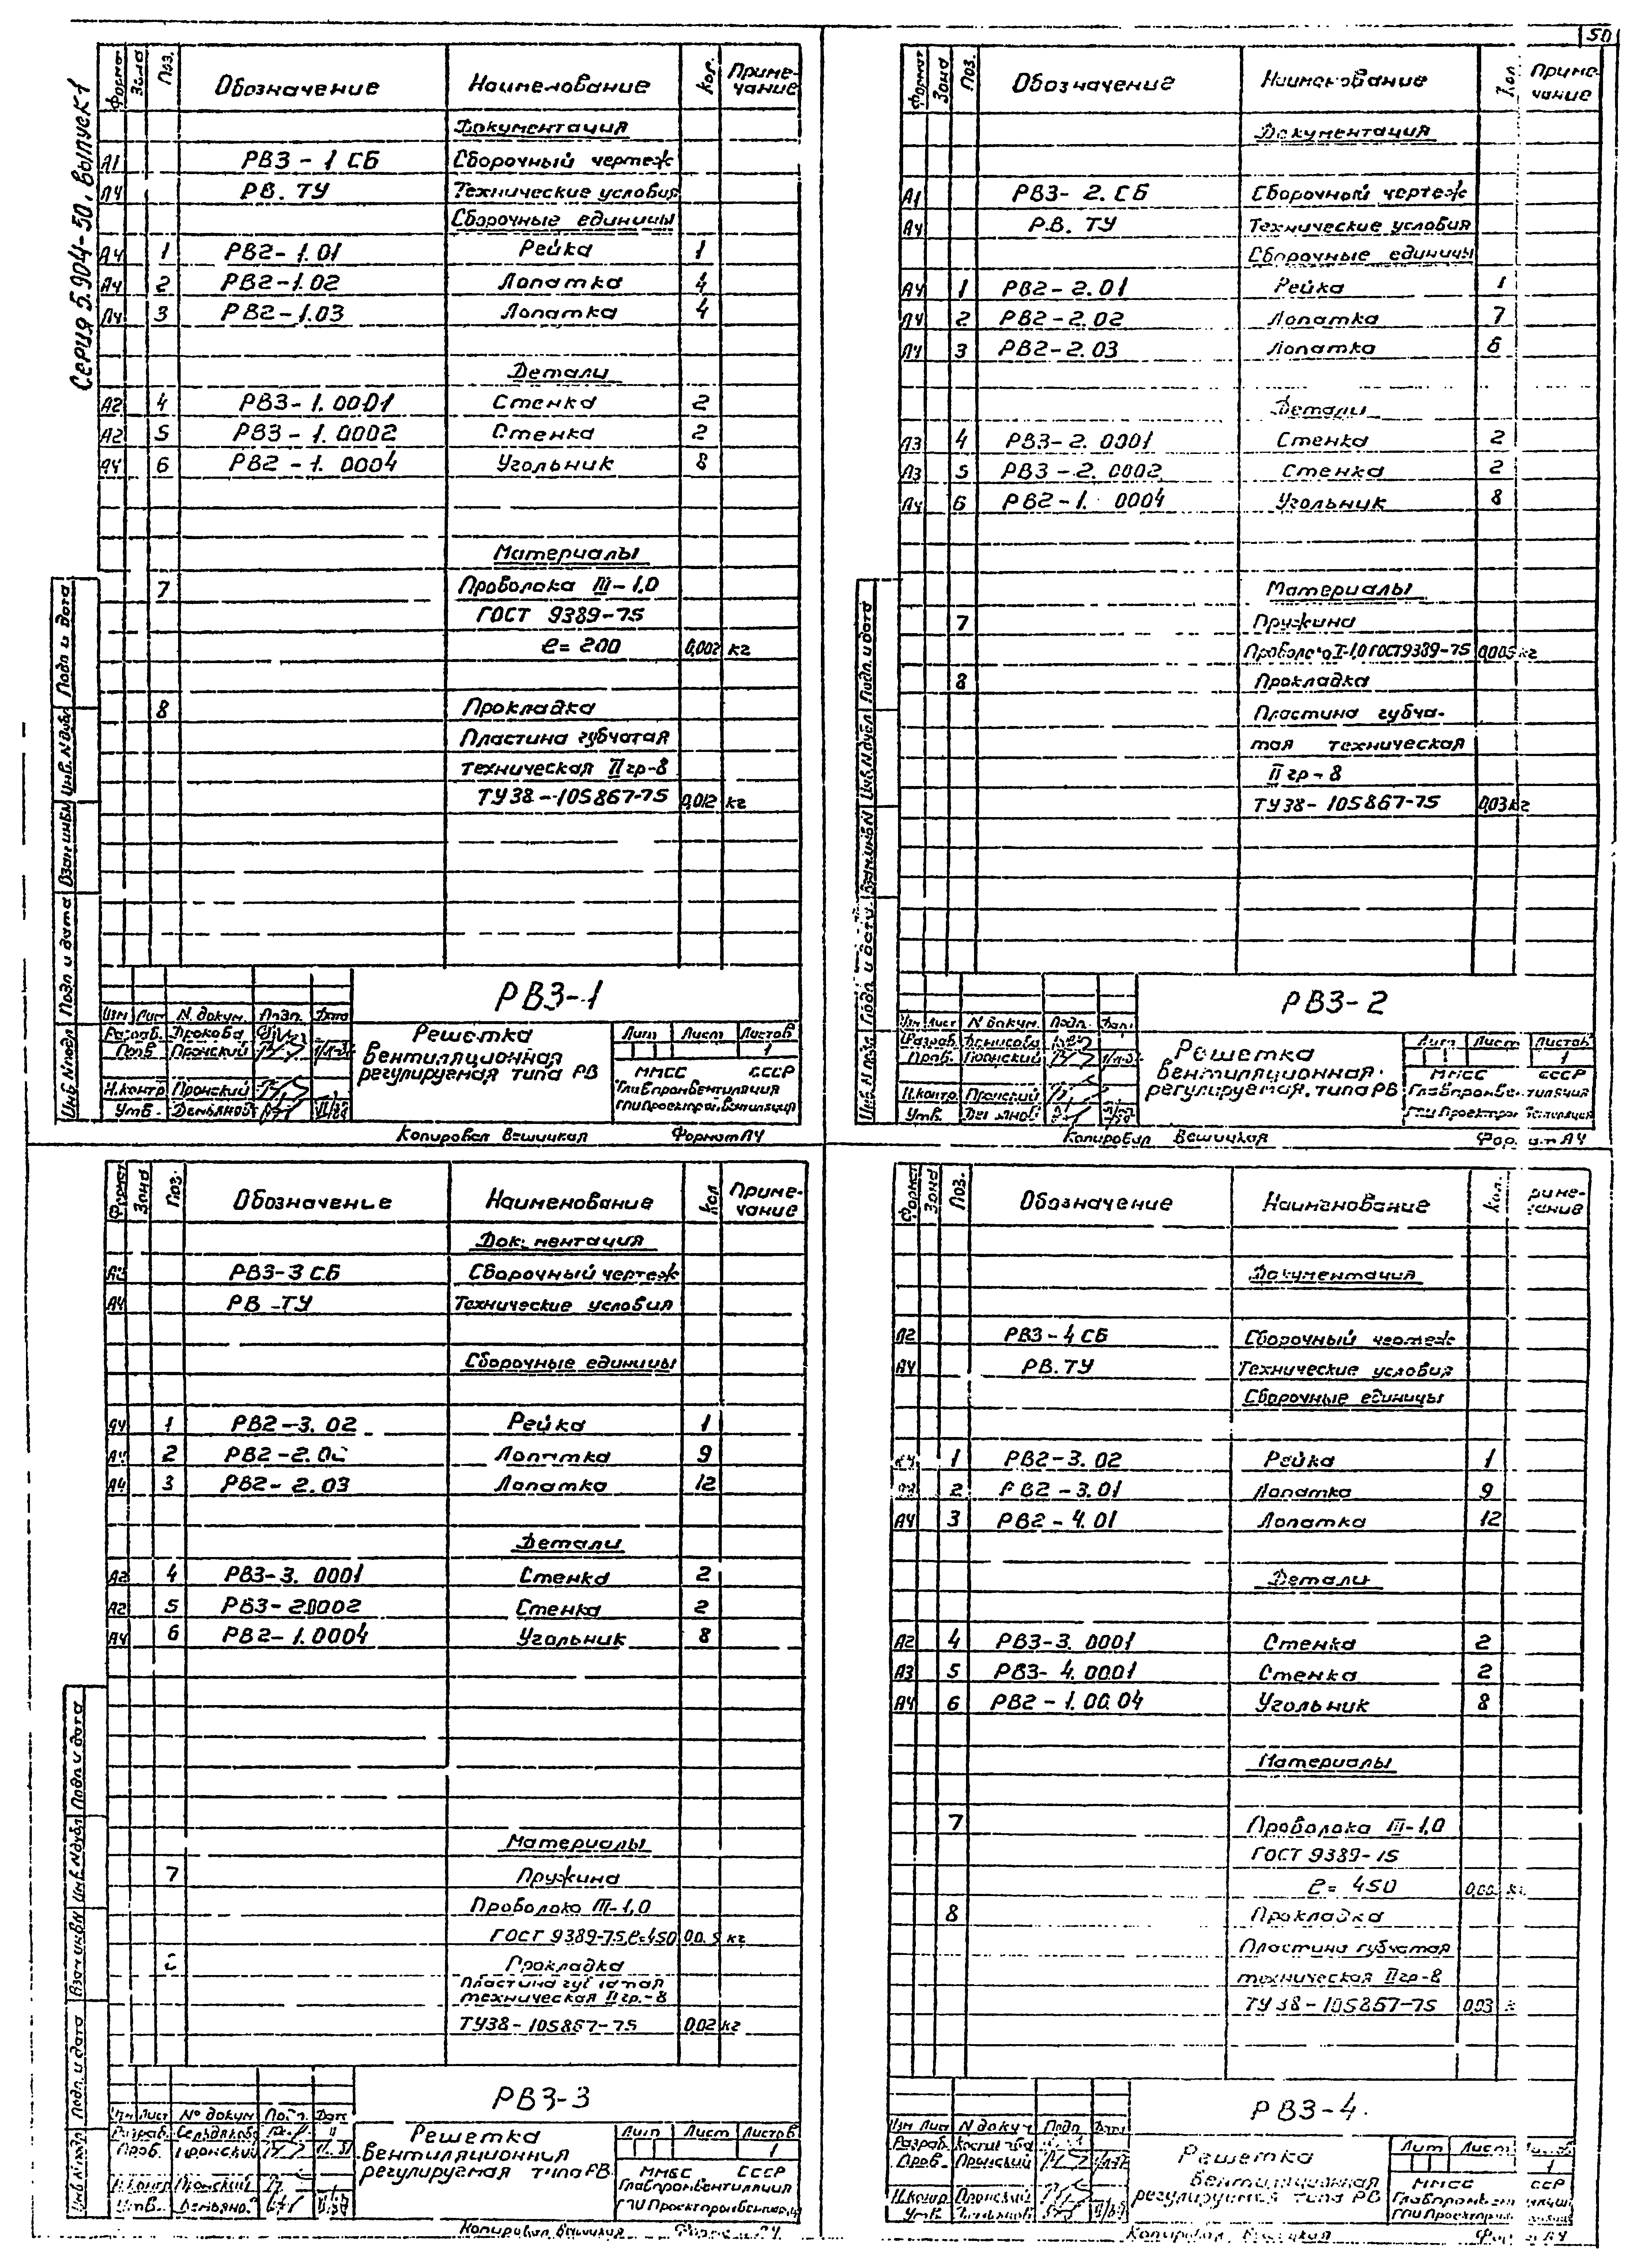 50
Серия 5.904-50, выпуск 1
Формат Зона Поз. Обозначение Наименование Кол. Приме-
чание
Документация
А1 РВ3-1 СБ Сборочный чертеж
А4 РВ. ТУ Технические условия
Сборочные единицы
А4 1 РВ2-1.01 Рейка 1
А4 2 РВ2-1.02 Лопатка 4
А4 3 РВ2-1.03 Лопатка 4
Детали
А2 4 РВ3-1.0001 Стенка 2
А2 5 РВ3-1.0002 Стенка 2
А4 6 РВ2-1.0004 Угольник 8
Материалы
7 Проволока III-1,0
ГОСТ 9389-75
ℓ= 200 0,002 кг
8 Прокладка
Пластина губчатая
техническая II гр-8
ТУ 38-105867-75 0,012 кг
Инв. N подл. Подп и дата Взам. инв. N Инв. N дубл. Подп и дата
РВ3-1
Изм Лист N. докум. Подп. Дата
Разраб.
Проб. Пронский
Н.контр. Пронский
Утв.
Решетка
вентиляционная
регулируемая типа РВ
Лит Лист Листов
1
ММСС СССР
Главпромвентиляция
ГПИ Проектпромвентиляция
Копировал Вешицкая Формат А4
Формат Зона Поз. Обозначение Наименование Кол Приме-
чание
Документация
А1 РВ3-2.СБ Сборочный чертеж
А4 РВ. ТУ Технические условия
Сборочные единицы
А4 1 РВ2-2.01 Рейка 1
А4 2 РВ2-2.02 Лопатка 7
А4 3 РВ2-2.03 Лопатка 6
Детали
А3 4 РВ3-2.0001 Стенка 2
А3 5 РВ3-2.0002 Стенка 2
А4 6 РВ2-1.0004 Угольник 8
Материалы
7 Пружина
ГОСТ 9389-75 0,005 кг
8 Прокладка
Пластина губча-
тая техническая
II гр-8
ТУ 38-105867-75 0,03 кг
Инв. N подл. Подп. и дата Взам. инв. N Инв. N дубл. Подп. и дата
РВ3-2
Изм Лист N докум. Подп. Дата
Разраб. Денисова
Проб. Пронский
Н.контр. Пронский
Утв.
Решетка
вентиляционная
регулируемая. типа РВ
Лит Лист Листов
1
ММСС СССР
Главпромвентиляция
ГПИ Проектпромвентиляция
Копировал Вешицкая Формат А4
Формат Зона Поз. Обозначение Наименование Кол Приме-
чание
Документация
РВ3-3 СБ Сборочный чертеж
А4 РВ-ТУ Технические условия
Сборочные единицы
А4 1 РВ2-3.02 Рейка 1
А4 2 РВ2-2.02 Лопатка 9
А4 3 РВ2-2.03 Лопатка 12
Детали
А2 4 РВ3-3.0001 Стенка 2
А2 5 РВ3-2.0002 Стенка 2
А4 6 РВ2-1.0004 Угольник 8
Материалы
7 Пружина
Проволока III-1,0
ГОСТ 9389-75, ℓ=450 кг
Прокладка
Пластина губчатая
техническая II гр.-8
ТУ38-105867-75 0,02 кг
Инв. N подл. Подп. и дата Взам. инв. N Инв. N дубл. Подп. и дата
РВ3-3
Изм Лист № докум Подп. Дата
Разраб.
Проб. Пронский
Н.контр Пронский
Утв.
Решетка
вентиляционния
регулируемая типа РВ
Лит Лист Листов
1
ММСС СССР
Главпромвентиляция
ГПИ Проектпромвентиляция
Копировал Вешицкая Формат А4
Формат Зона Поз. Обозначение Наименование Кол. Приме-
чание
Документация
А2 РВ3-4 СБ Сборочный чертеж
А4 РВ.ТУ Технические условия
Сборочные единицы
А4 1 РВ2-3.02 Рейка 1
2 РВ2-3.01 Лопатка 9
А4 3 РВ2-4.01 Лопатка 12
Детали
А2 4 РВ3-3.0001 Стенка 2
А3 5 РВ3-4.0001 Стенка 2
А4 6 РВ2-1.00.04 Угольник 8
Материалы
7 Проволока III-1,0
ГОСТ 9389-75
ℓ= 450
8 Прокладка
Пластина губчатая
техническая II гр-8
ТУ 38-105867-75 0,03
РВ3-4.
Изм Лист N докум Подп. Дата
Разраб.
Проб. Пронский
Н.контр. Пронский
Утв.
Решетка
вентиляционная
регулируемая типа РВ
Лит Лист Листов
1
ММСС СССР
Главпромвентиляция
ГПИ Проектпромвентиляция
Копировал Вешицкая Формат А4